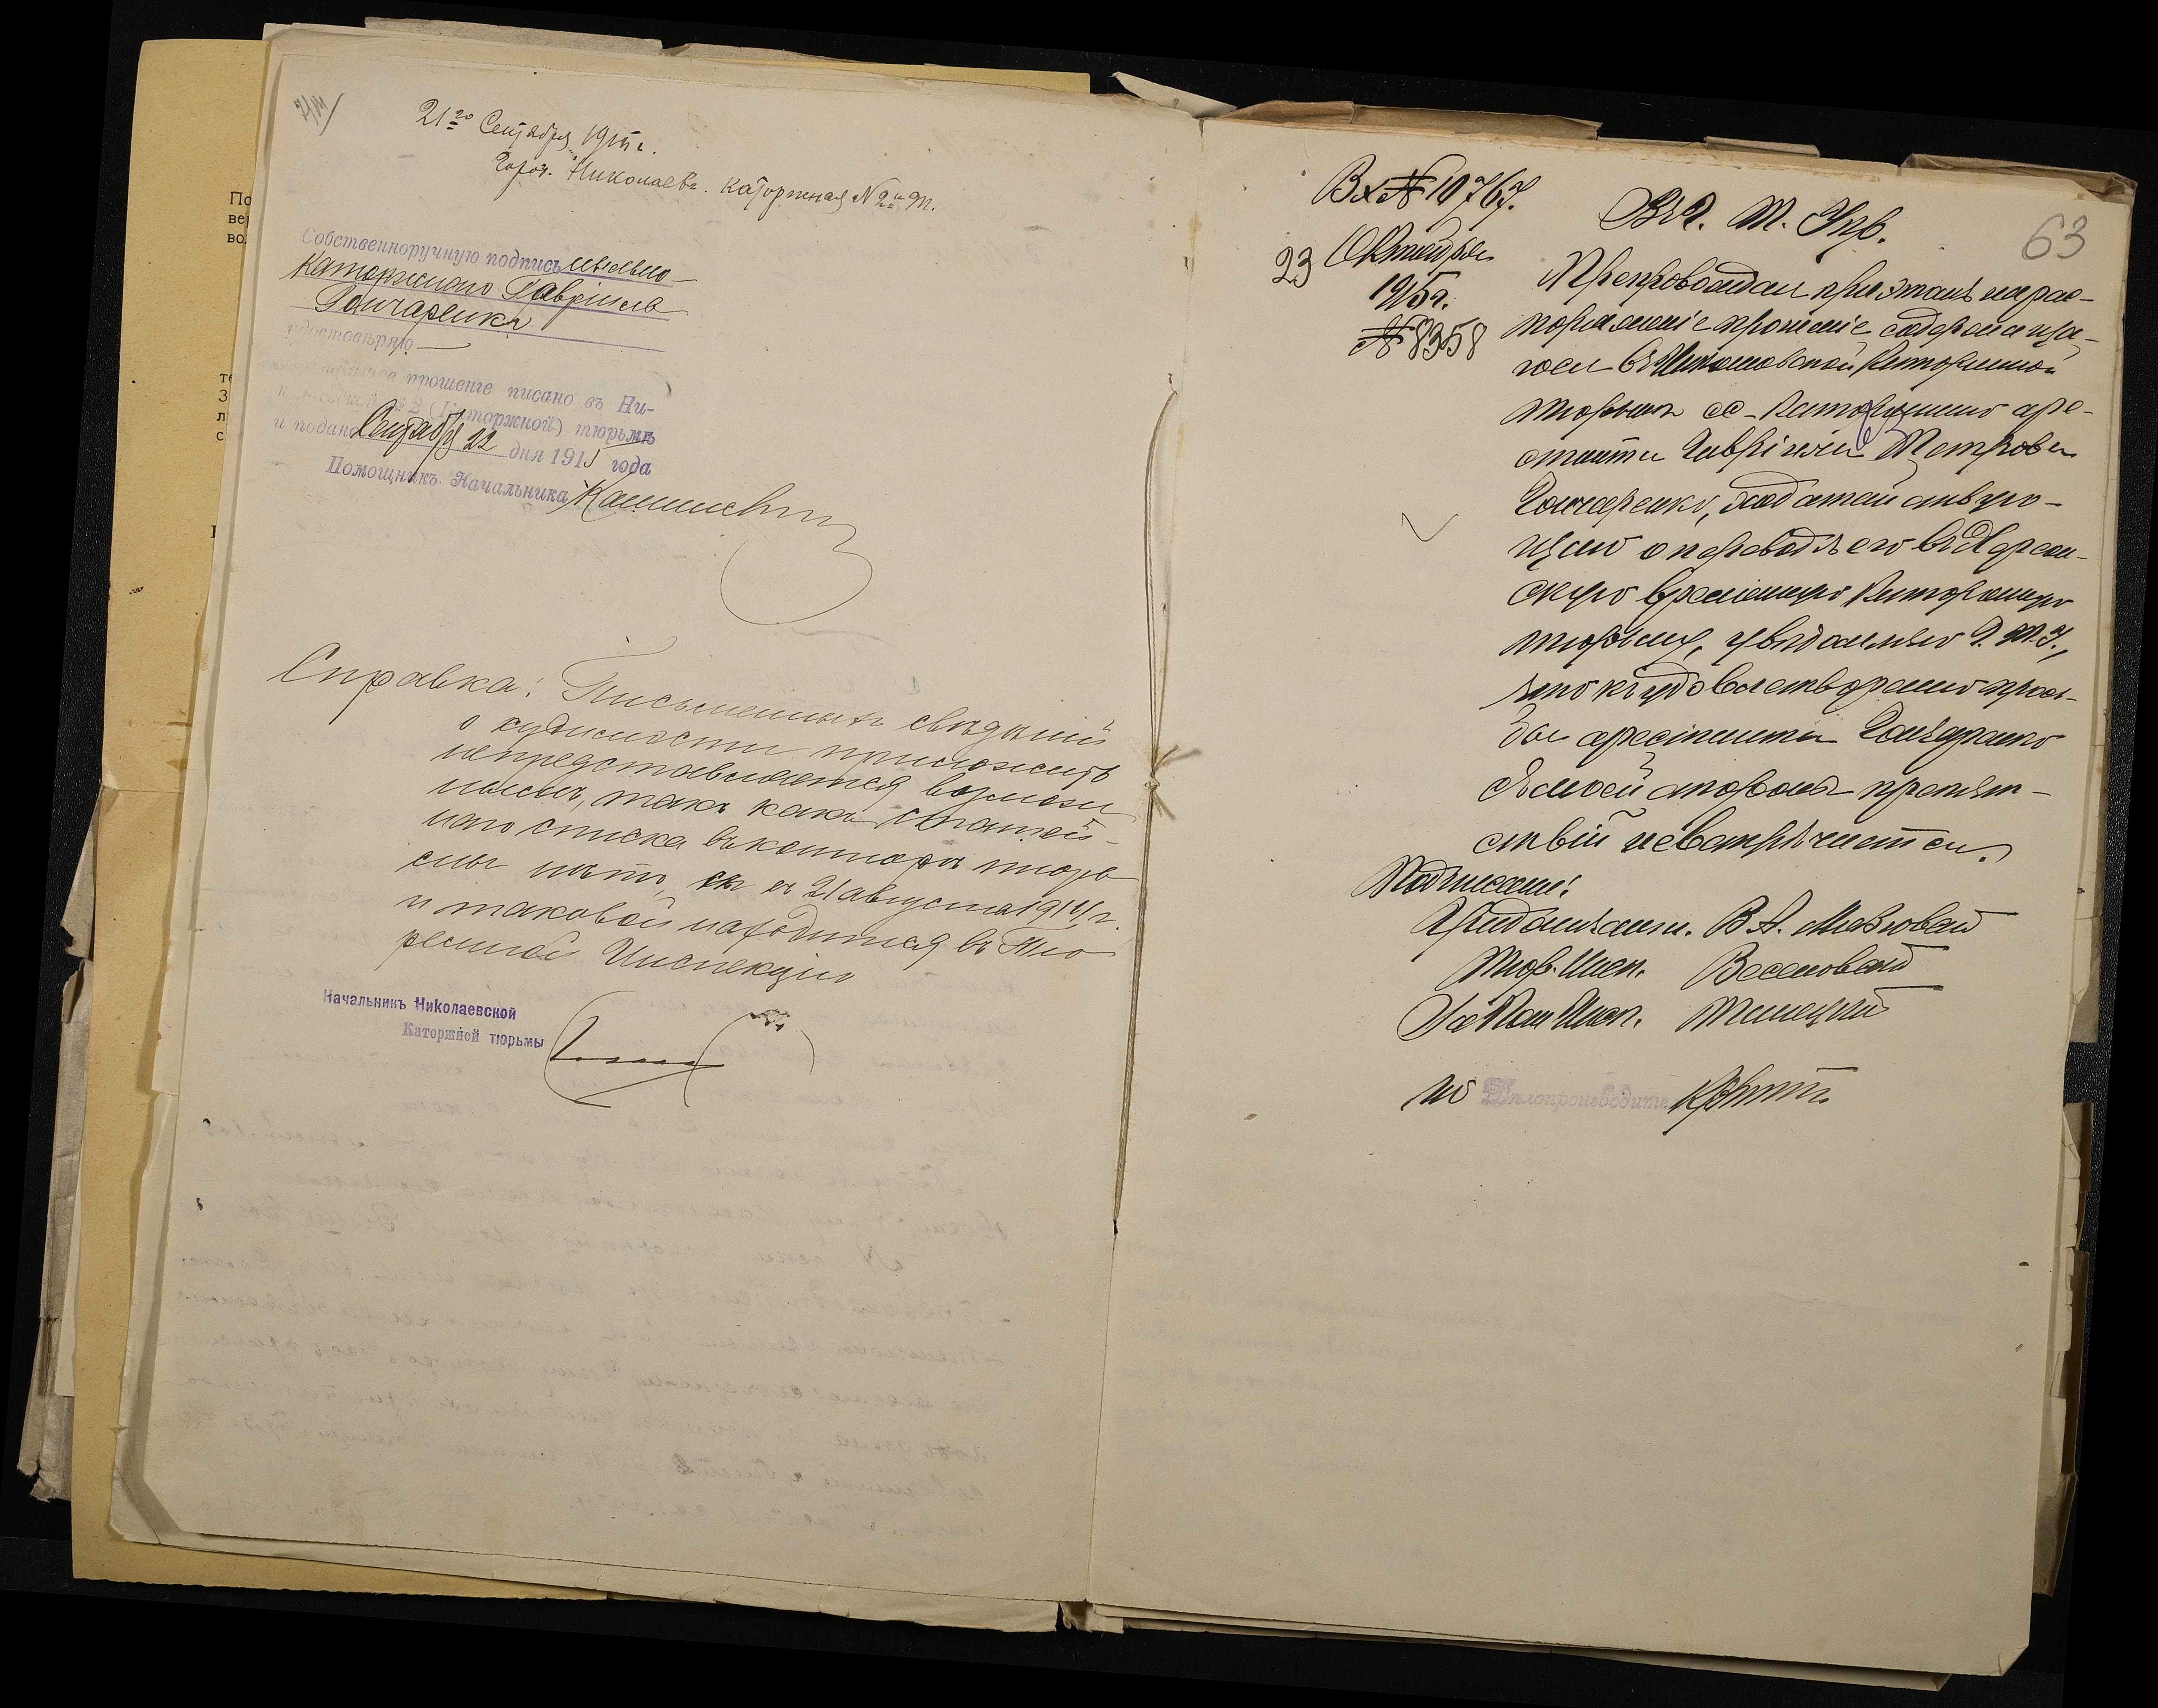 21го Сентября 1915 г.
Город. Николаевъ. Каторжная № 2й т.
Собственноручную подпись ссыльно-
каторжнаго Гавріила
Гончаренка
удостовѣряю
прошеніе писано въ Ни-
№ 2 (Каторжной) тюрьмѣ
и подано Сентября 22 дня 1915 года
Помощникъ Начальника
Справка: Письменныхъ свѣдѣній
о судимости приложить
непредставляется возмож
нымъ, такъ какъ статей-
наго списка въ конторѣ тюрь
мы нѣтъ, съ 21 августа 1914 г.
и таковой находится въ Тю
ремной Инспекціи
Начальникъ Николаевской
Каторжной тюрьмы
63
Вх № 10767.
23 Октября
1915 г.
№ 8358
Въ Г. Т. Упр.
Препровождая при этомъ на рас-
поряженіе прошеніе содержаща-
гося въ Николаевской Каторжной
тюрьмѣ сс-каторжнаго аре-
станта Гавріила Петрова
Гончаренко, ходатайствую-
щаго о переводѣ его въ Херсон-
скую временную Каторжную
тюрьму, увѣдомляю Г. Т. У.,
что къ удовлетворенію прось-
бы арестанта Гончаренко
съ моей стороны препят-
ствій невстрѣчается.
Подписали:
Тюр. Инсп.
Инсп.
Дѣлопроизводите